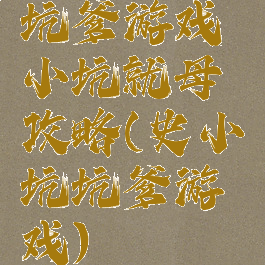 坑爹游戏
小坑就母
攻略(史小
坑坑爹游
戏)